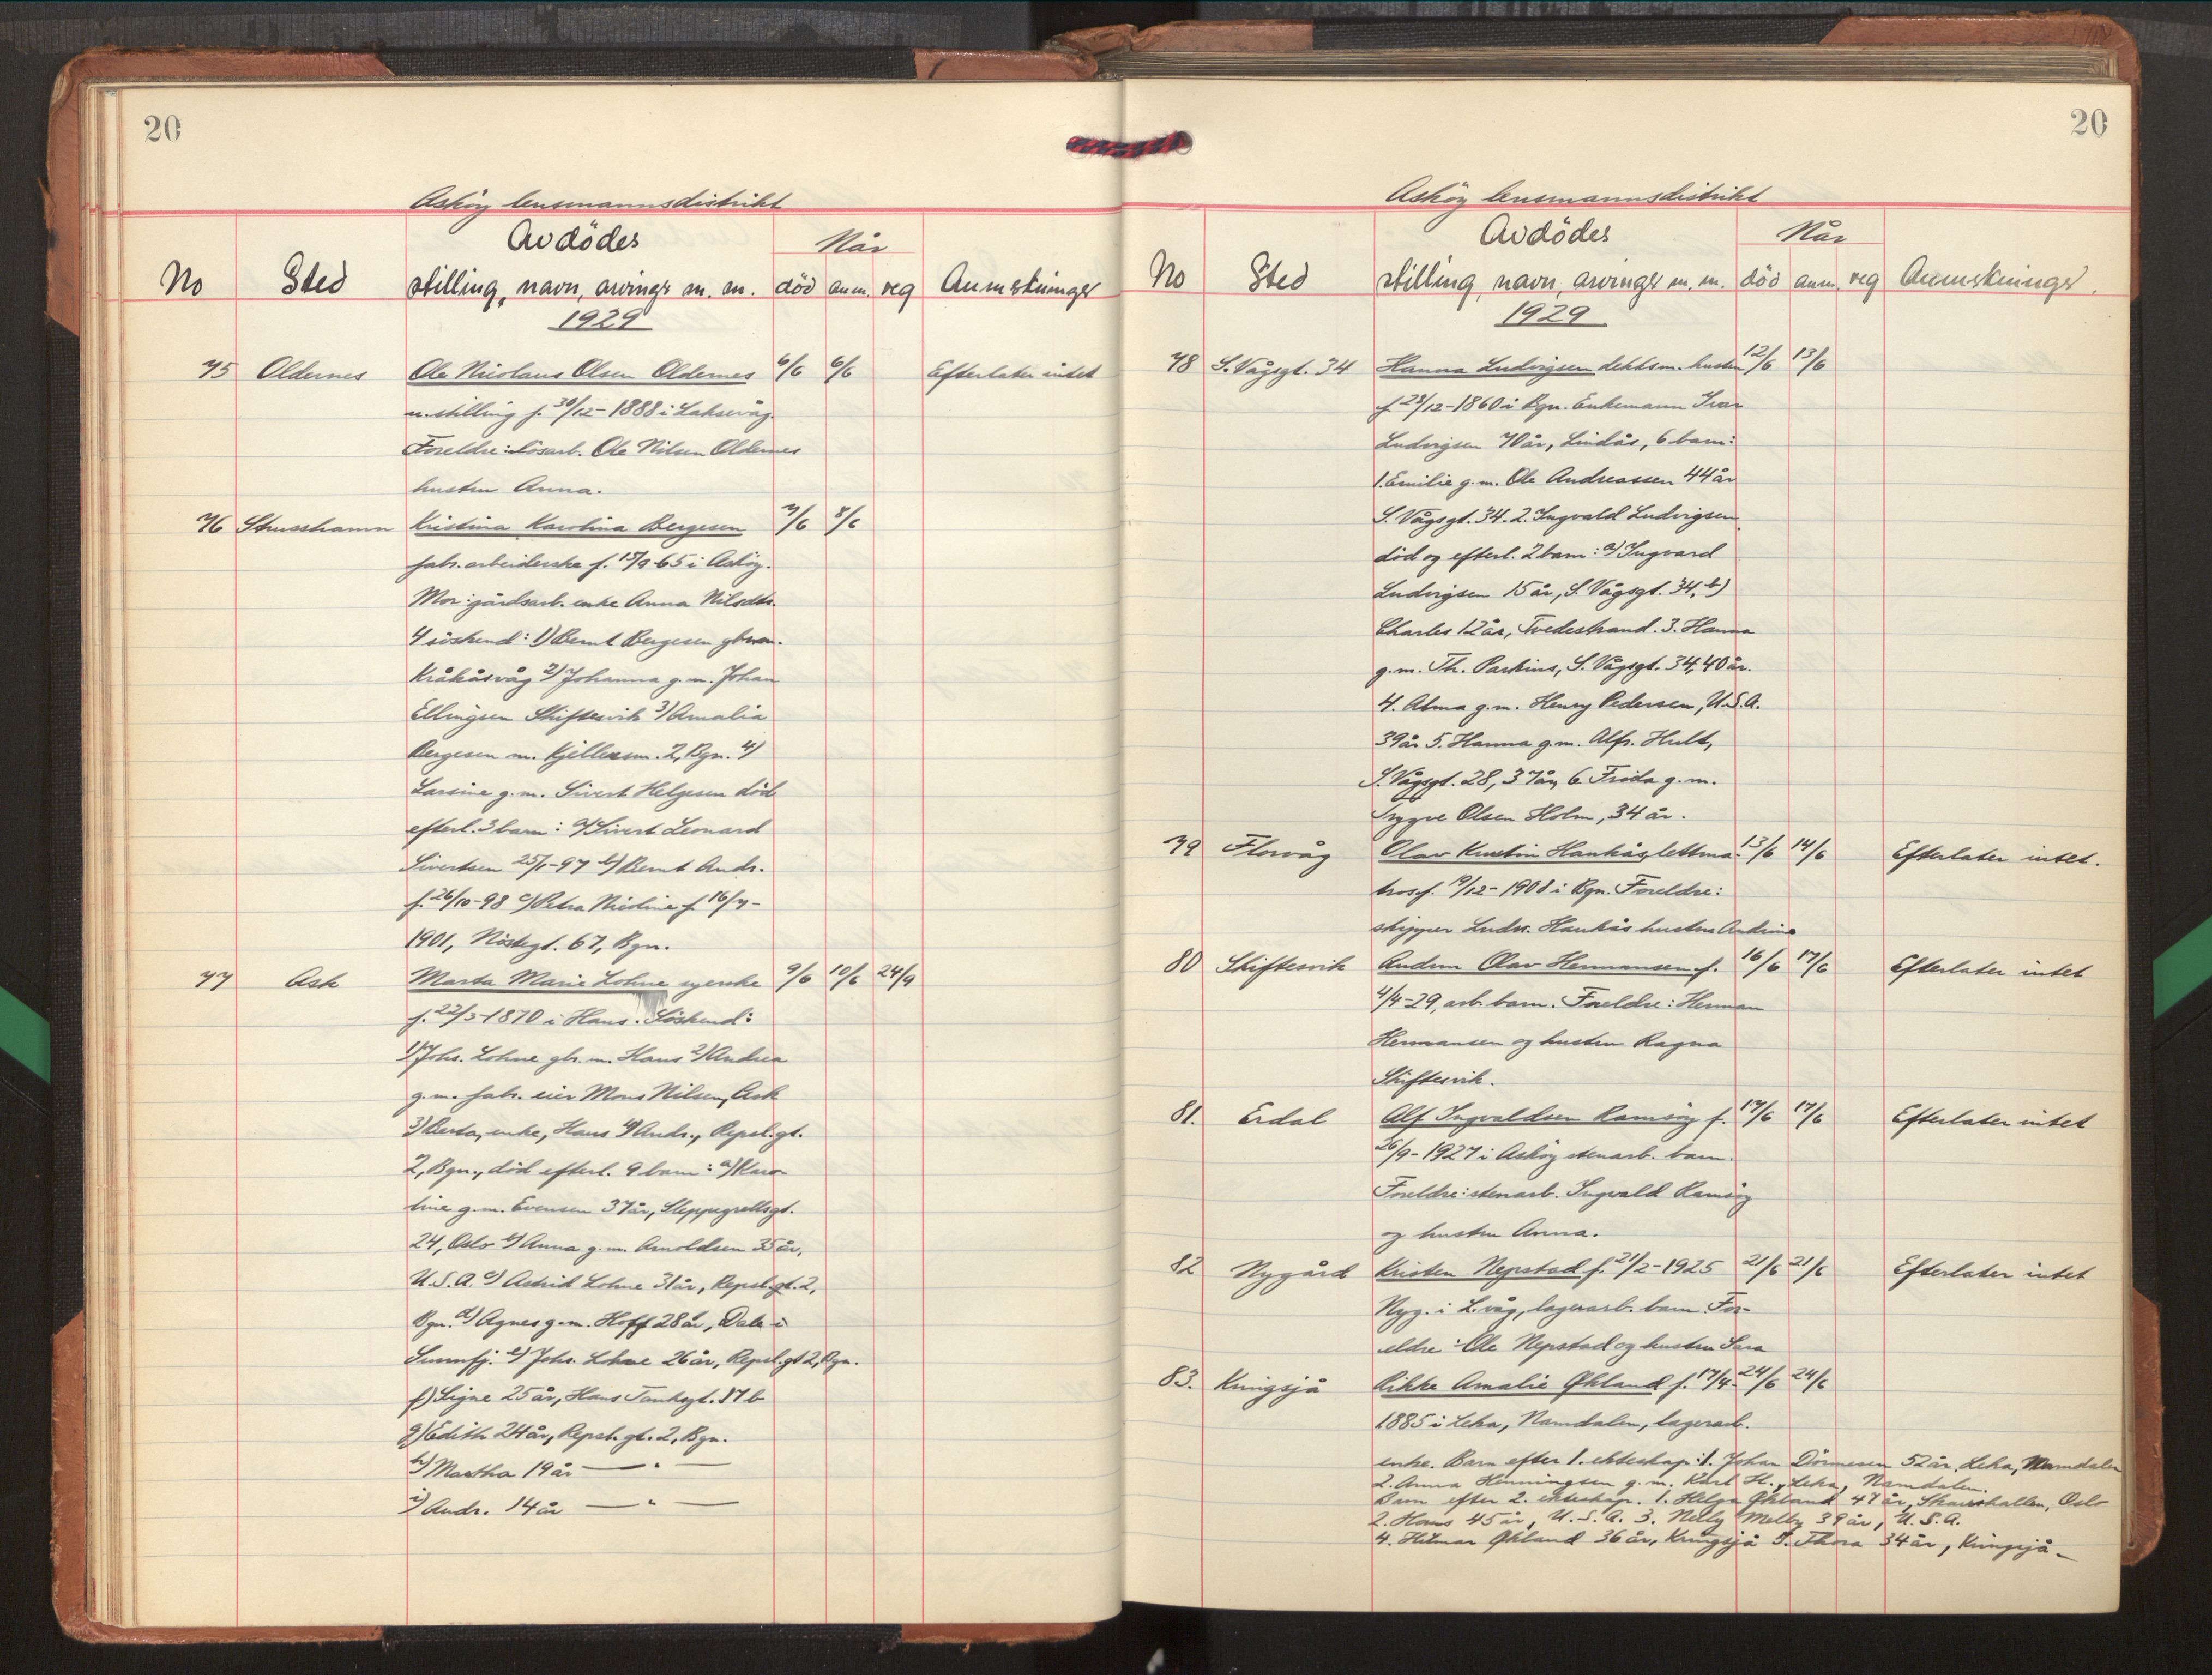 20
Askøy lensmannsdistrikt
No Sted Avdödes stilling, navn, arvinger m. m. Når död anm. reg Anmerkninger
1929
75 Oldernes Ole Nicolaus Olsen Oldernes 6/6 6/6 Efterlater intet
u. stilling f. 30/12-1888 i Laksevåg.
Foreldre: lösarb. Ole Nilsen Oldernes
hustru Anna.
76 Strusshamn Kristina Karolina Bergesen 7/6 8/6
fabr. arbeiderske f. 15/9-65 i Asköy.
Mor: gårdsarb. enke Anna Nilsdtr.
4 söskend: 1) Bernt Bergesen gbrm.
Kråkåsvåg 2) Johanna g. m. Johan
Ellingsen Skiftesvik 3) Amalia
Bergesen m. Kjellersm. 2, Bgn. 4)
Larsine g. m. Sivert Helgesen död
efterl. 3 barn: a) Sivert Leonard
Sivertsen 25/1-97 b) Bernt Andr.
f. 26/10-98 c) Petra Nicoline f. 16/7-
1901, Nöstegt. 67, Bgn.
77 Ask Marta Marie Lohne syerske 9/6 10/6 24/9
f. 22/5-1870 i Haus. Söskend:
1) Johs. Lohne gbr. m. Haus 2) Andrea
g. m. fabr. eier Mons Nilsen, Ask
3) Berta, enke, Haus 4) Andr., Repsl.gt.
2, Bgn., död efterl. 9 barn: a) Karo-
line g. m. Evensen 37 år, Steppegrellsgt.
24, Oslo b) Anna g. m. Arnoldsen 35 år,
U.S.A. c) Astrid Lohne 31 år, Repsl.gt. 2,
Bgn. d) Agnes g. m. Hoff 28 år, Dale i
Sunnfj. e) Johs. Lohne 26 år, Repsl.gt 2, Bgn.
f) Signe 25 år, Hans Tanksgt. 17 b
g) Edith 24 år, Repsl. gt. 2, Bgn.
h) Martha 19 år — " —
i) Andr. 14 år — " —
20
Askøy lensmannsdistrikt
No Sted Avdödes stilling, navn, arvinger m. m. Når död anm. reg Anmerkninger.
1929
78 S. Vågsgt. 34 Hanna Ludvigsen dekksm. hustru 12/6 13/6
f. 28/12-1860 i Bgn. Enkemann Ivar
Ludvigsen 70 år, Lindås, 6 barn:
1. Emilie g. m. Ole Andreassen 44 år
S. Vågsgt. 34. 2. Ingvald Ludvigsen
död og efterl. 2 barn: a) Ingvard
Ludvigsen 15 år, S. Vågsgt. 34, b)
Charles 12 år, Tvedestrand. 3. Hanna
g. m. Th. Parkins, S. Vågsgt. 34, 40 år.
4. Alma g. m. Henry Pedersen, U.S.A.
39 år 5. Hanna g. m. Alfr. Hult,
S. Vågsgt. 28, 37 år, 6. Frida g. m.
Trygve Olsen Holm, 34 år.
79 Florvåg Olav Kristin Haukås, lettma- 13/6 14/6 Efterlater intet.
tros f. 19/12-1908 i Bgn. Foreldre:
skipper Ludv. Haukås hustru Andrine
80 Skiftesvik Andren Olav Hermansen f. 16/6 17/6 Efterlater intet
4/4-29, arb. barn. Foreldre: Herman
Hermansen og hustru Ragna
Skiftesvik.
81. Erdal Alf Ingvaldsen Ramsöy f. 17/6 17/6 Efterlater intet
26/9-1927 i Asköy stenarb. barn.
Foreldre: stenarb. Ingvald Ramsöy
og hustru Anna.
82 Nygård Kristen Nepstad f. 21/2-1925 21/6 21/6 Efterlater intet
Nyg. i L.våg, lagerarb. barn. For-
eldre: Ole Nepstad og hustru Sara
83. Kringsjå Rikke Amalie Økland f. 17/4- 24/6 24/6
1885 i Leka, Namdalen, lagerarb.
enke. Barn efter 1. ekteskap: 1. Johan Dörnesen 52 år, Leka, Namdalen
2. Anna Henningsen g. m. Karl H., Leka, Namdalen.
Barn efter 2. ekteskap. 1. Helga Økland 47 år, Oslo
2. Hans 45 år, U.S.A. 3. Nelly Melby 39 år, U.S.A.
4. Hilmar Økland 36 år, Kringsjå 5. Thora 34 år, Kringsjå -